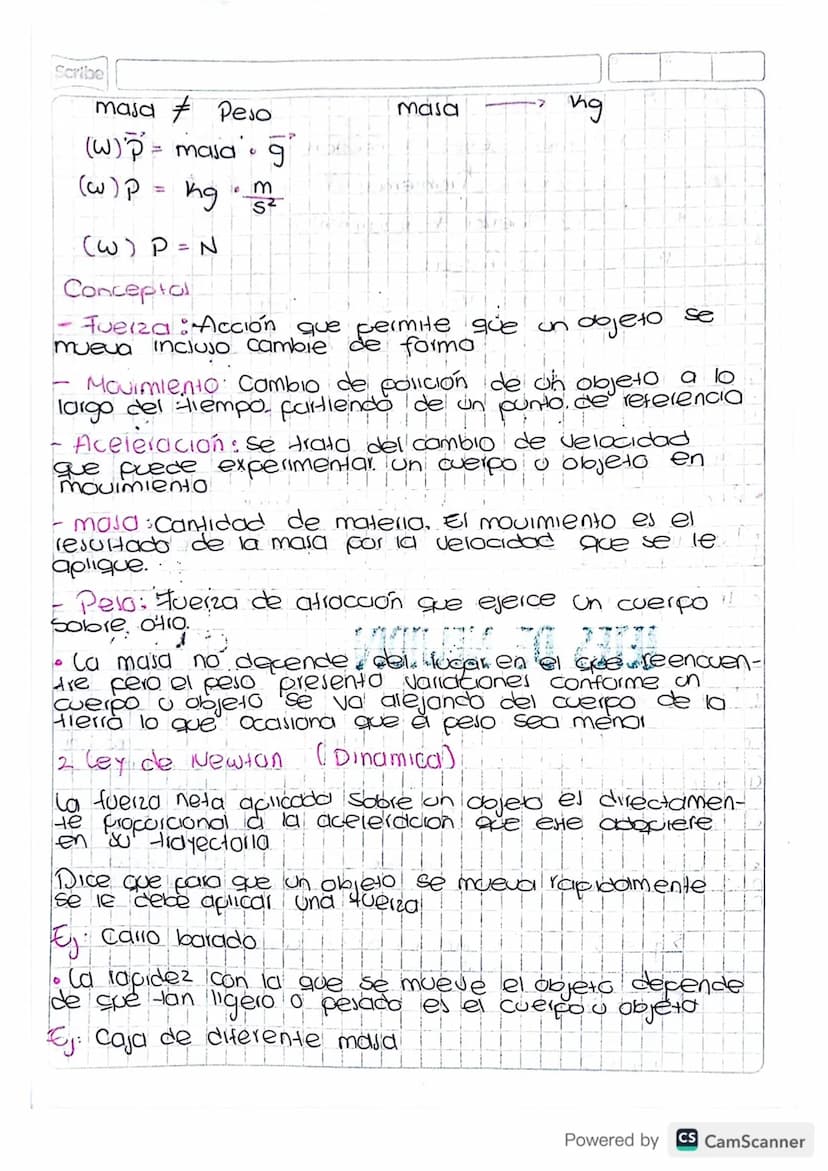 Scribe
masa ≠ Peso masa → kg
(W) P⃗ = masa · g⃗
(w) P = kg · m/s²
(w) P = N
Conceptos
- Fuerza: Acción que permite que un objeto se
mueva incluso cambie de forma
- Movimiento: Cambio de posición de un objeto a lo
largo del tiempo partiendo de un punto de referencia
- Aceleración: se trata del cambio de velocidad
que puede experimentar un cuerpo u objeto en
movimiento
- masa: Cantidad de materia. El movimiento es el
resultado de la masa por la velocidad que se le
aplique.
- Peso: Fuerza de atracción que ejerce un cuerpo
sobre otro.
• La masa no depende del lugar en el que se encuen-
tre pero el peso presenta variaciones conforme un
cuerpo u objeto se va alejando del cuerpo de la
tierra lo que ocasiona que el peso sea menor
2 Ley de Newton (Dinamica)
La fuerza neta aplicada sobre un objeto es directamen-
te proporcional a la aceleracion que este adquiere
en su trayectoria
Dice que para que un objeto se mueva rapidamente
se le debe aplicar una fuerza
Ej: Carro barado
• La rapidez con la que se mueve el objeto depende
de que tan ligero o pesado es el cuerpo u objeto
Ej: Caja de diferente masa
Powered by CS CamScanner